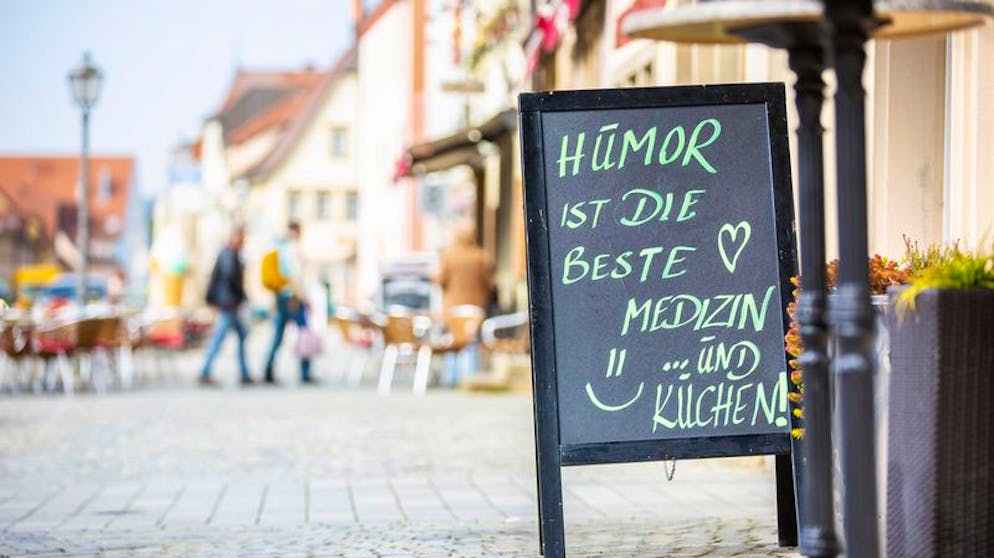 HŪMOR
IST DIE
BESTE ♡
MEDIZIN
...ŪND
KŪCHEN!